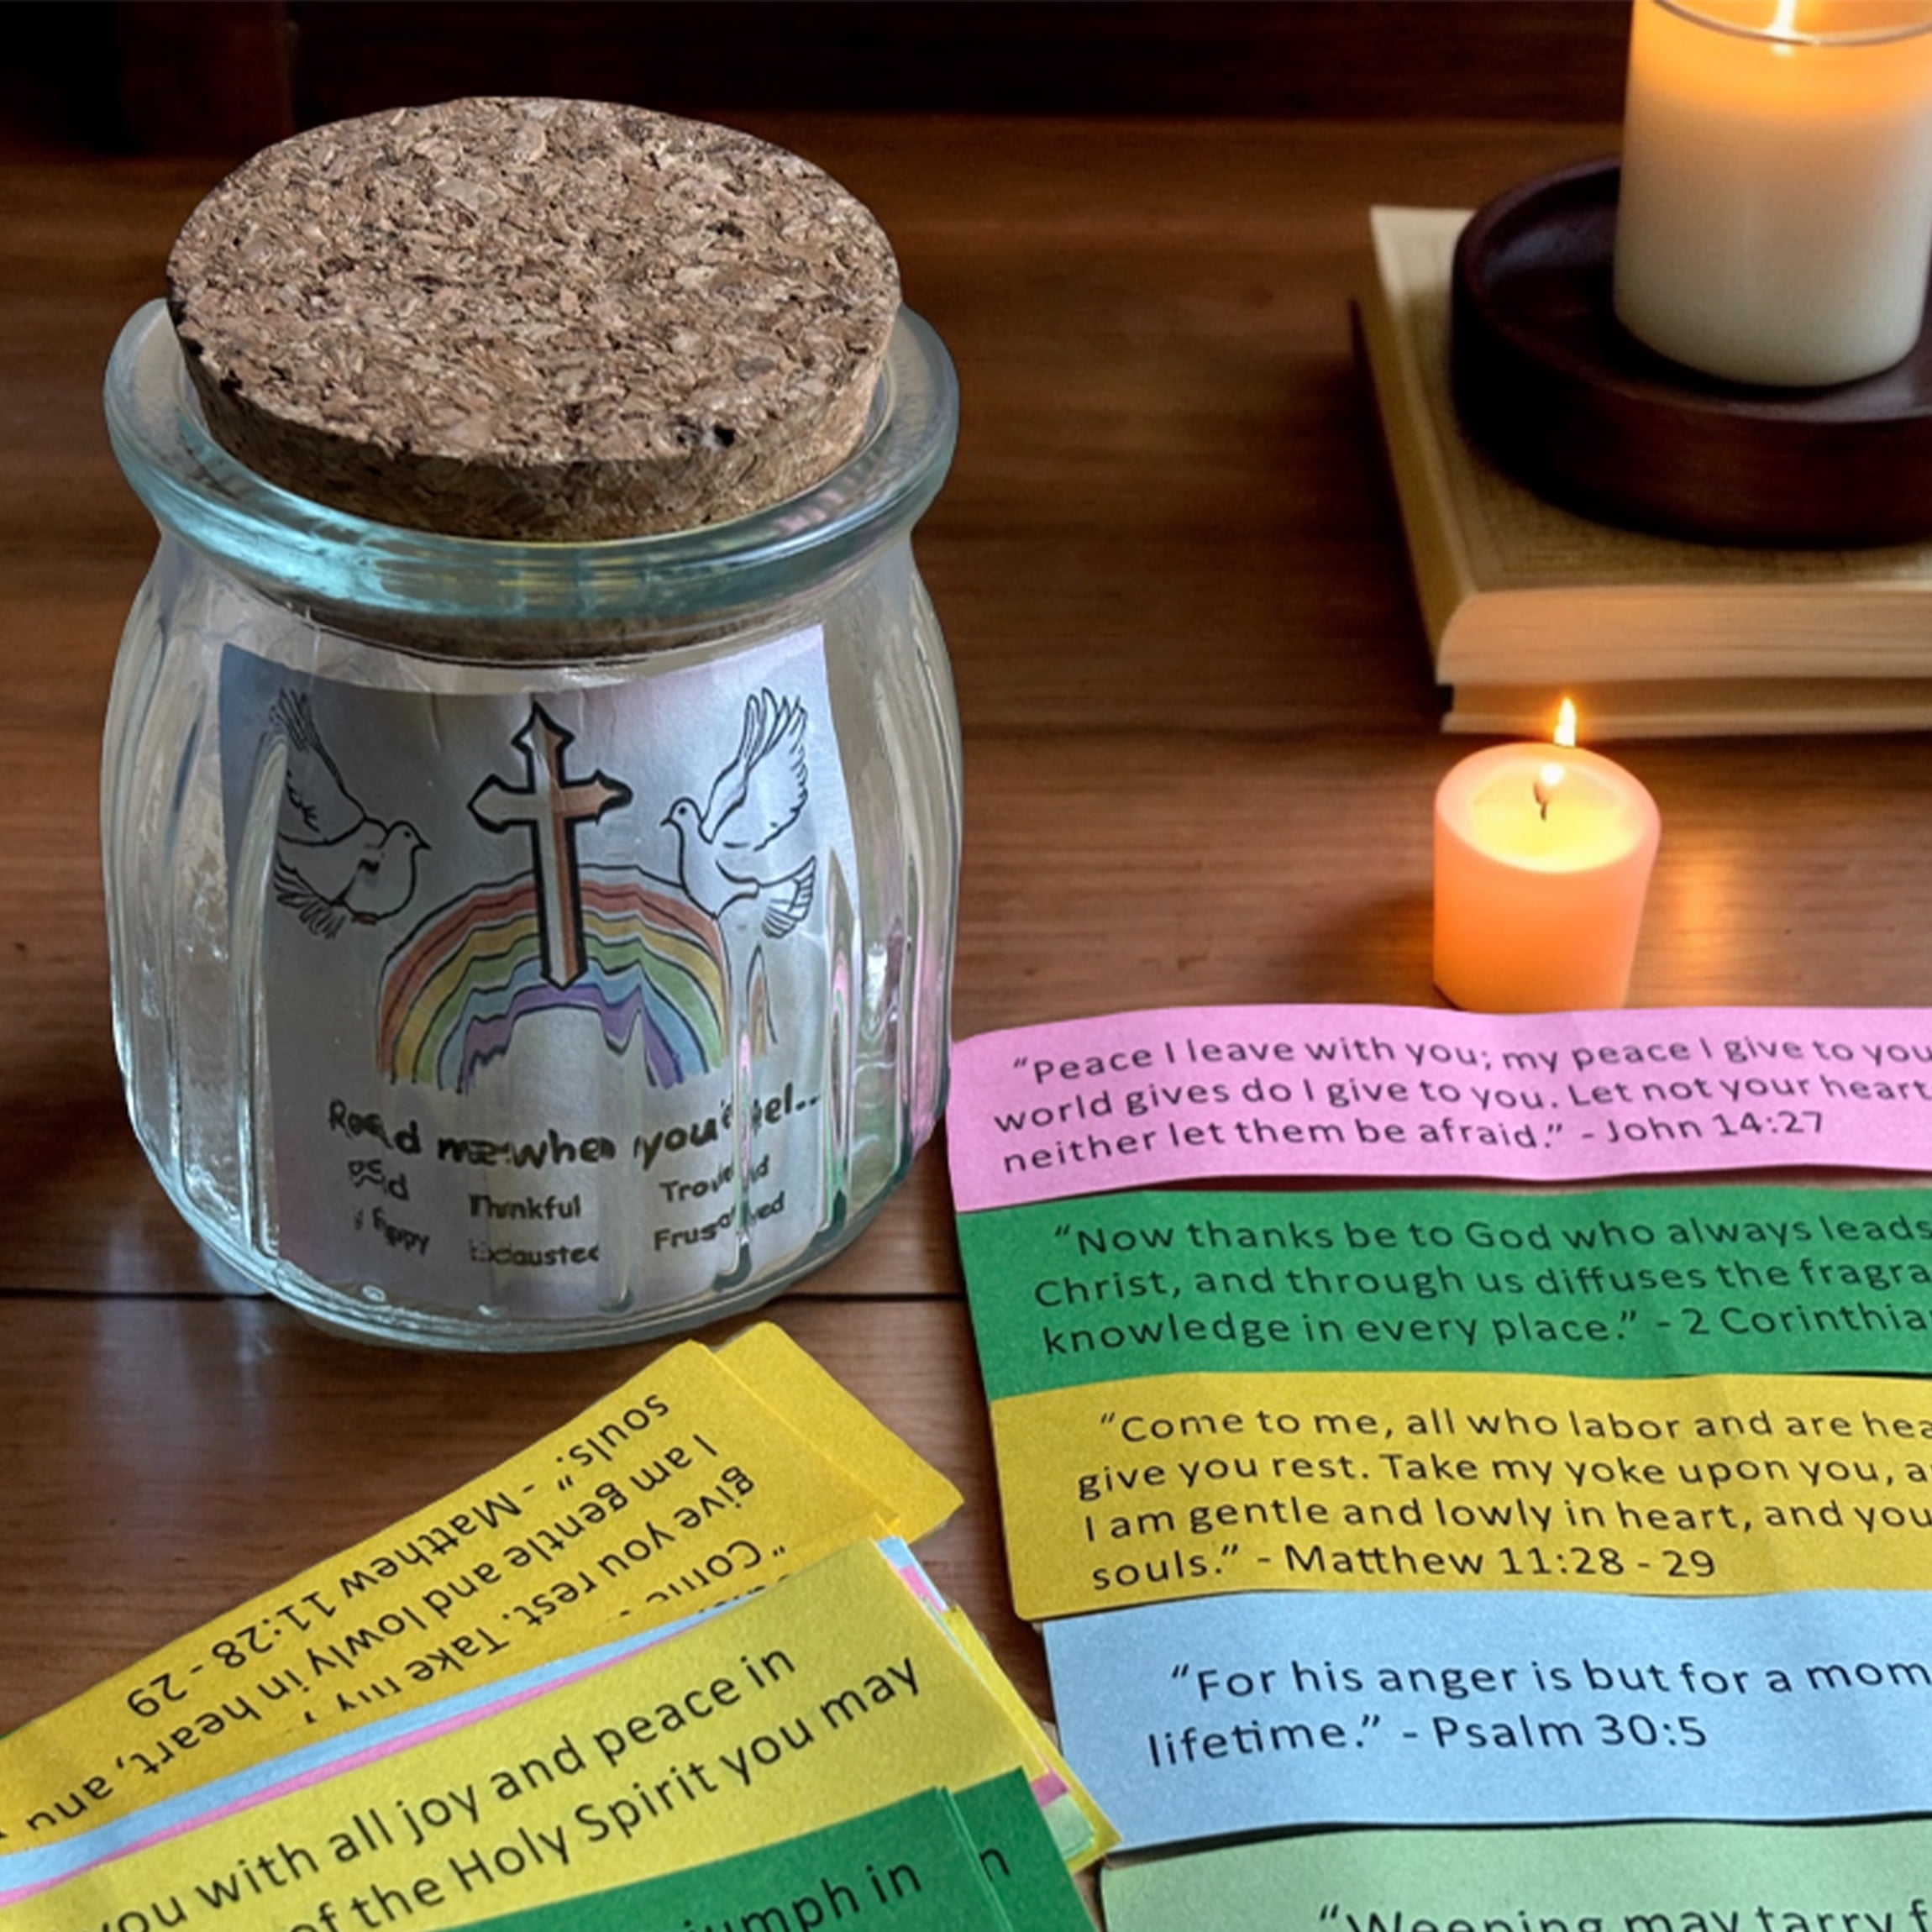 Read me when you feel...
Sad
Thankful
Happy
Exhausted
“Peace I leave with you; my peace I give to you
world gives do I give to you. Let not your heart
neither let them be afraid.” - John 14:27
“Now thanks be to God who always leads
Christ, and through us diffuses the fragra
knowledge in every place.” - 2 Corinthia
“Come to me, all who labor and are hea
give you rest. Take my yoke upon you, a
I am gentle and lowly in heart, and you
souls.” - Matthew 11:28 - 29
“For his anger is but for a mom
lifetime.” - Psalm 30:5
“Weeping may tarry f
“Come
give you rest. Take my
I am gentle and lowly in heart, and
souls.” - Matthew 11:28 - 29
you with all joy and peace in
of the Holy Spirit you may
umph in
n